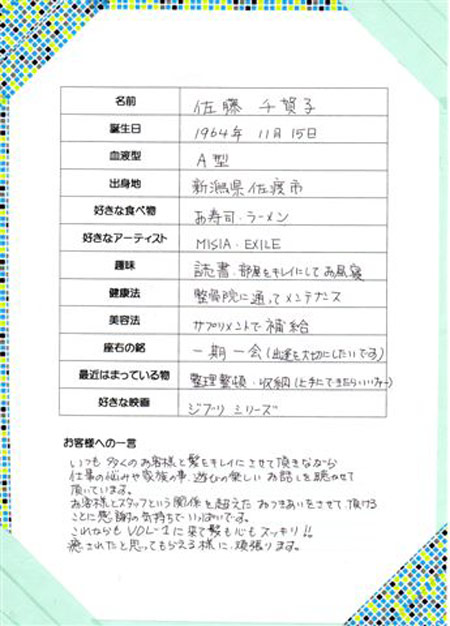 名前 佐藤 千賀子
誕生日 1964年 11月 15日
血液型 A型
出身地 新潟県佐渡市
好きな食べ物 お寿司・ラーメン
好きなアーティスト MISIA・EXILE
趣味 読書・部屋をキレイにしてお昼寝
健康法 整骨院に通ってメンテナンス
美容法 サプリメントで補給
座右の銘 一期一会(出逢を大切にしたいです)
最近はまっている物 整理整頓・収納(上手にできたらいいなー)
好きな映画 ジブリシリーズ
お客様への一言
いつも多くのお客様と髪をキレイにさせて頂きながら
仕事の悩みや家族の事、遊びの楽しいお話しを聴かせて
頂いています。
お客様とスタッフという関係を超えたおつきあいをさせて頂ける
ことに感謝の気持ちでいっぱいです。
これからもVOL-1に来て髪も心もスッキリ!!
癒されたと思ってもらえる様に、頑張ります。